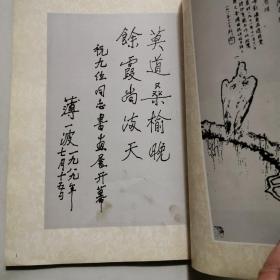 莫道桑榆晚
餘霞尚满天
祝九位同志書画展开幕
薄一波一九八九年
七月十五日